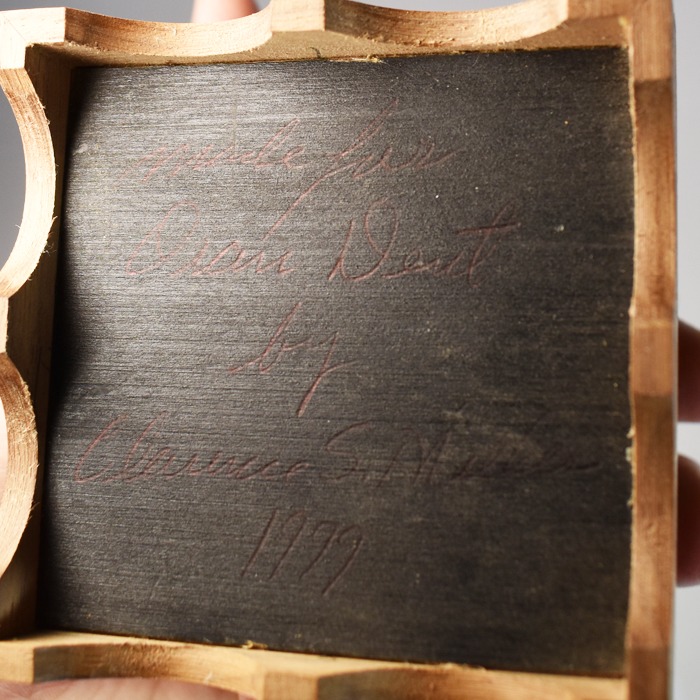 made for
Dean Dent
by
Clarence S.
1979